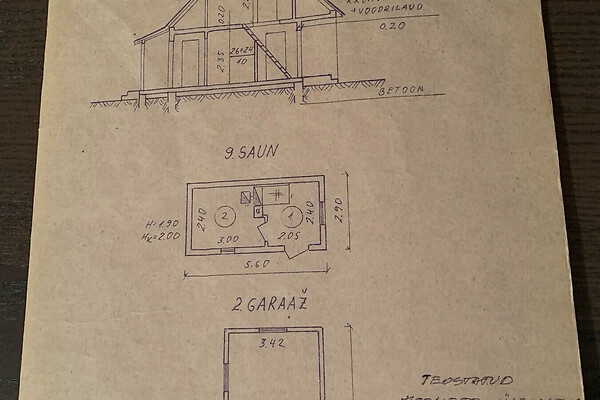 +VOODRILAUD
0.20
0.20
2.35
26+24
10
BETOON
9. SAUN
H=1.90
Hk=2.00
2.40
2
3.00
1
2.05
2.40
2.90
5.60
2. GARAAŽ
3.42
TEOSTATUD